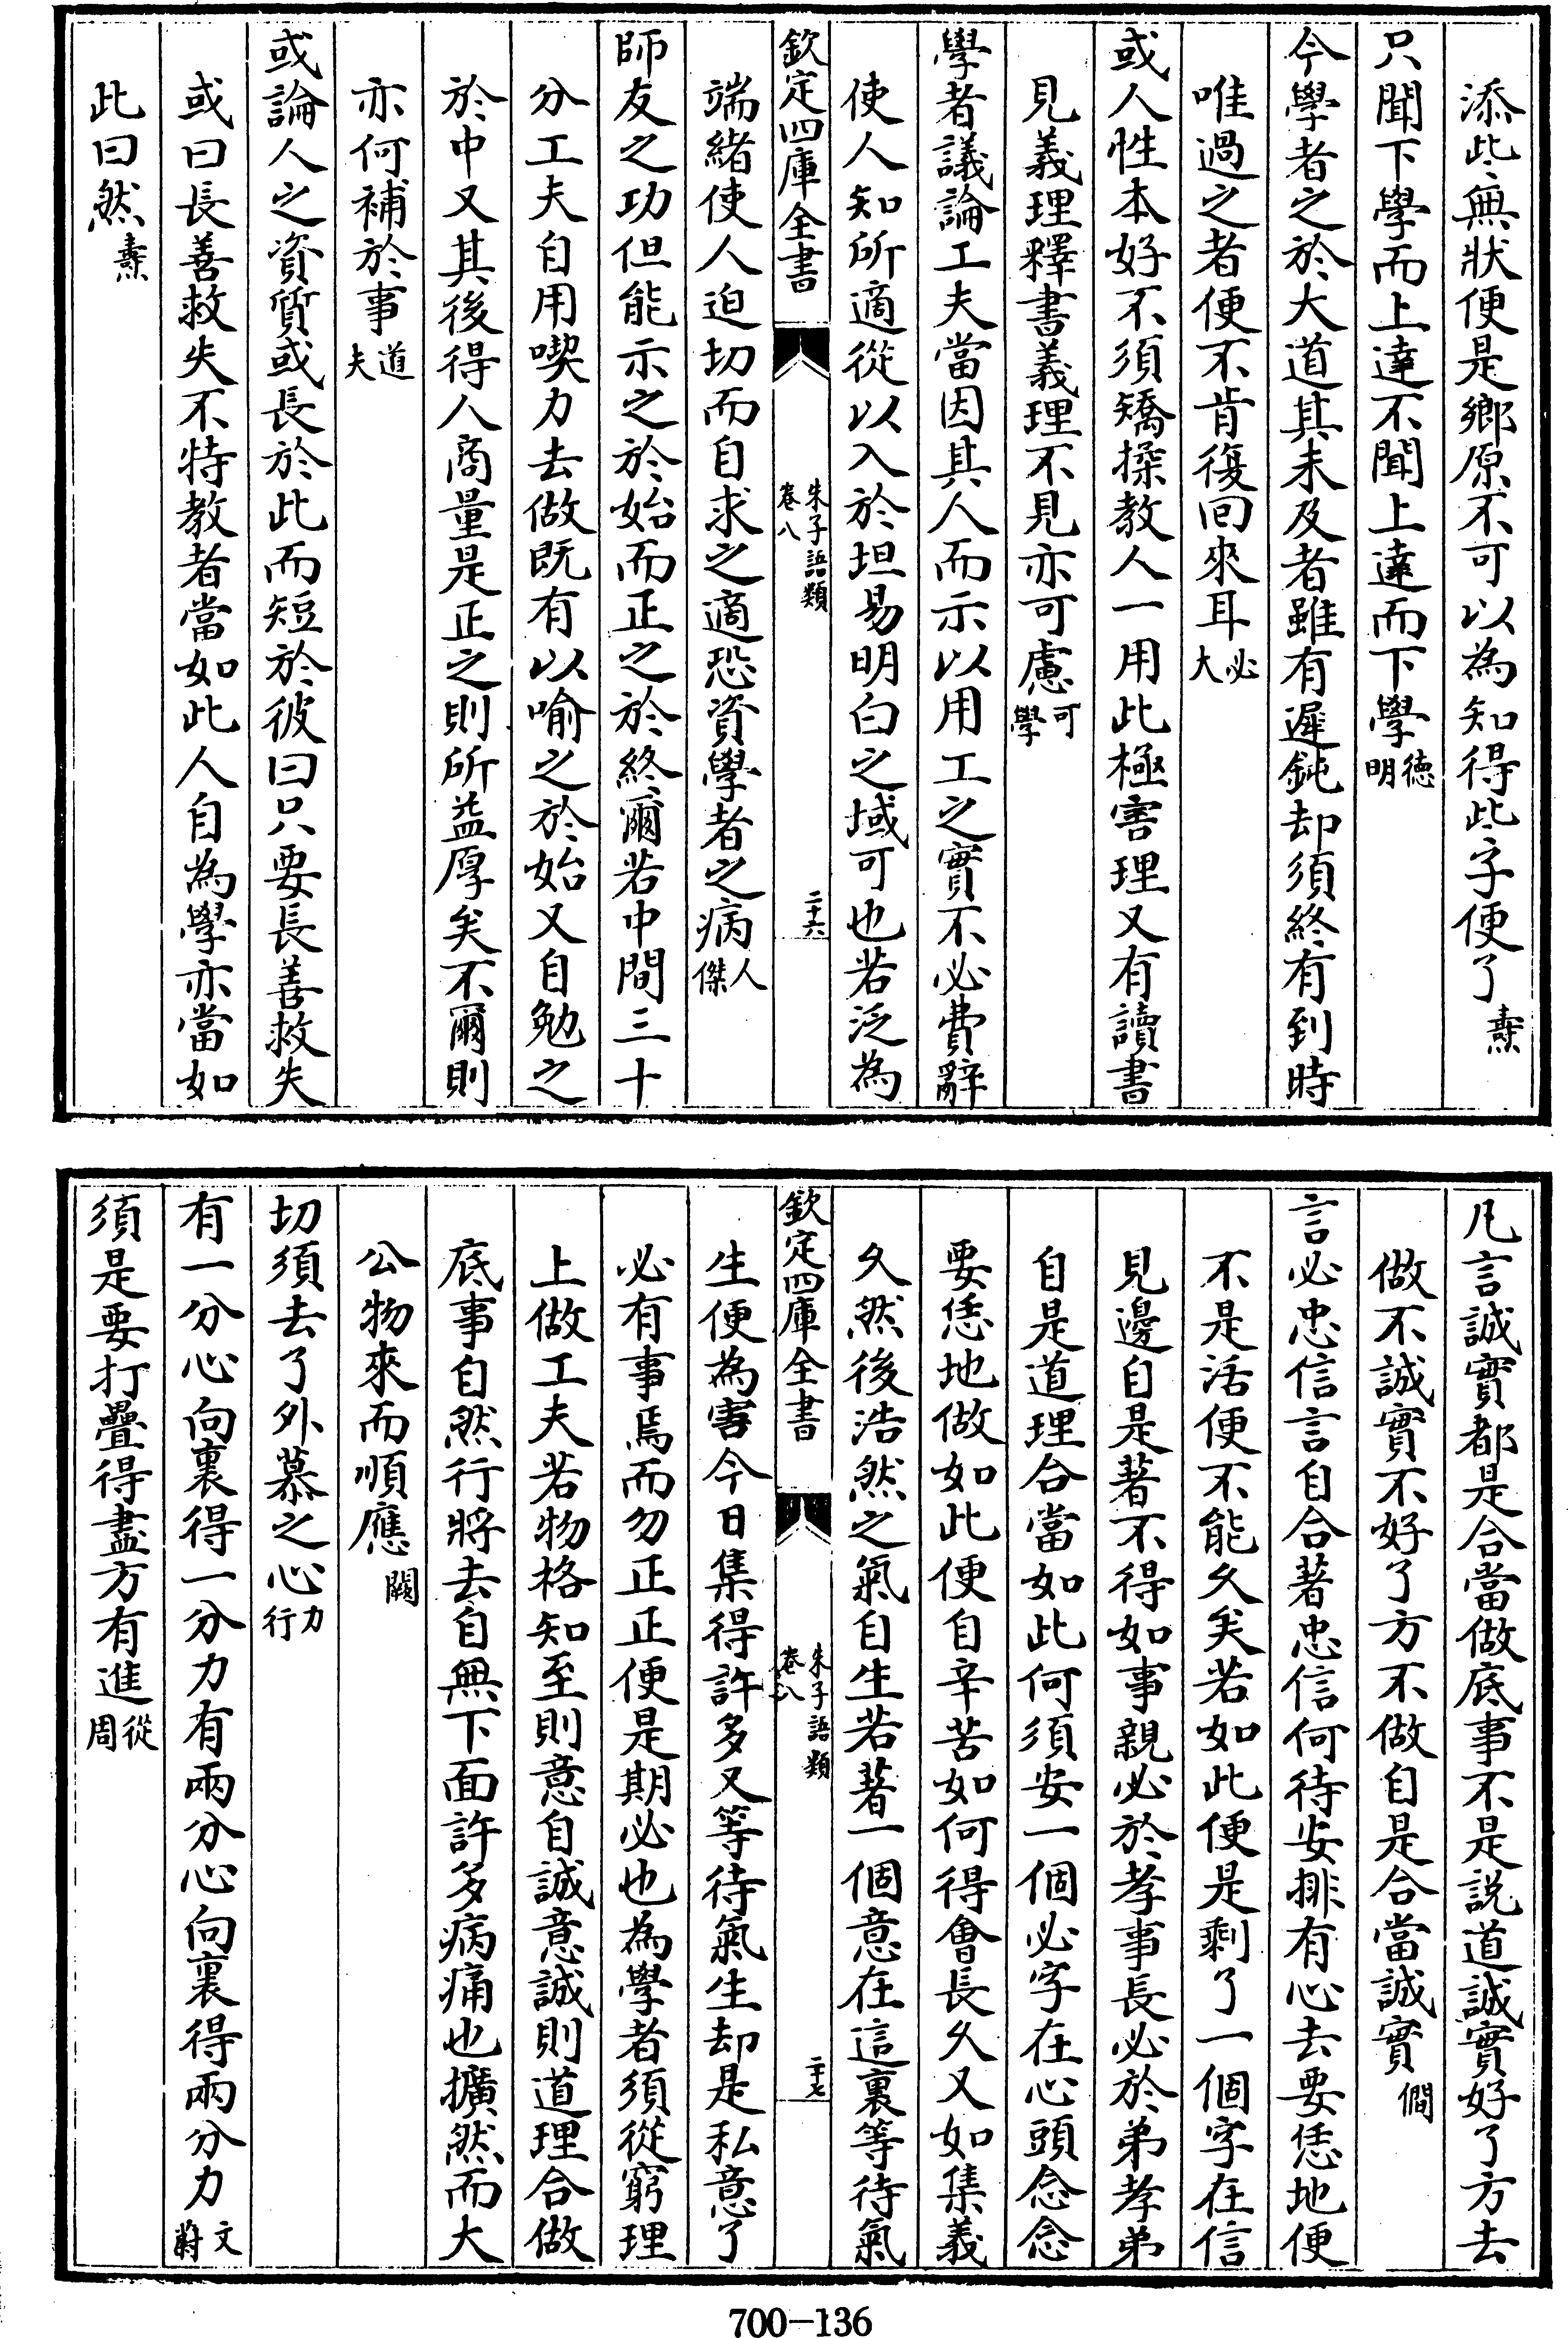 添此無狀便是鄉原不可以為知得些字便了燾
只聞下學而上達不聞上達而下學德明
今學者之於大道其未及者雖有遲鈍却須終有到時
唯過之者便不肯復回來耳必大
或人性本好不須矯揉教人一用此極害理又有讀書
見義理釋書義理不見亦可慮可學
學者議論工夫當因其人而示以用工之實不必費辭
使人知所適從以入於坦易明白之域可也若泛為
欽定四庫全書
朱子語類
卷八
二十六
端緒使人迫切而自求之適恐資學者之病人傑
師友之功但能示之於始而正之於終爾若中間三十
分工夫自用喫力去做既有以喻之於始又自勉之
於中又其後得人商量是正之則所益厚矣不爾則
亦何補於事道夫
或論人之資質或長於此而短於彼曰只要長善救失
或曰長善救失不特教者當如此人自為學亦當如
此曰然燾
凡言誠實都是合當做底事不是說道誠實好了方去
做不誠實不好了方不做自是合當誠實僩
言必忠信言自合著忠信何待安排有心去要恁地便
不是活便不能久矣若如此便是剩了一個字在信
見邊自是著不得如事親必於孝事長必於弟孝弟
自是道理合當如此何須安一個必字在心頭念念
要恁地做如此便自辛苦如何得會長久又如集義
久然後浩然之氣自生若著一個意在這裏等待氣
欽定四庫全書
朱子語類
卷八
二十七
生便為害今日集得許多又等待氣生却是私意了
必有事焉而勿正正便是期必也為學者須從窮理
上做工夫若物格知至則意自誠意誠則道理合做
底事自然行將去自無下面許多病痛也擴然而大
公物來而順應闕
切須去了外慕之心力行
有一分心向裏得一分力有兩分心向裏得兩分力文蔚
須是要打疊得盡方有進從周
700-136